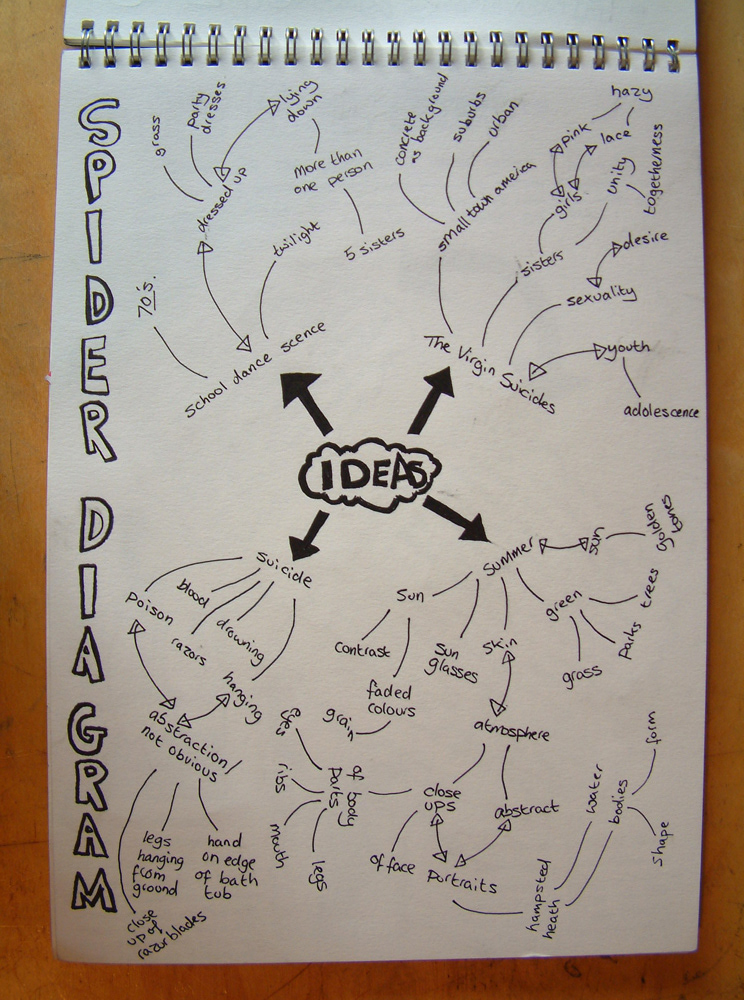 SPIDER DIAGRAM
grass
party
dresses
lying
down
dressed up
more than
one person
5 sisters
twilight
70's.
School dance scence
concrete
as background
suburbs
urban
small town america
hazy
pink
lace
girls
unity
togetherness
sisters
desire
sexuality
The Virgin Suicides
youth
adolescence
IDEAS
suicide
poison
blood
razors
drowning
hanging
abstraction/
not obvious
legs
hanging
from
ground
hand
on edge
of bath
tub
close
up of
razorblades
summer
sun
golden
tones
green
trees
parks
grass
Sun
contrast
faded
colours
grain
Sun
glasses
skin
atmosphere
close
ups
abstract
of body
parts
eyes
ribs
mouth
legs
of face
portraits
hampsted
heath
water
bodies
form
shape